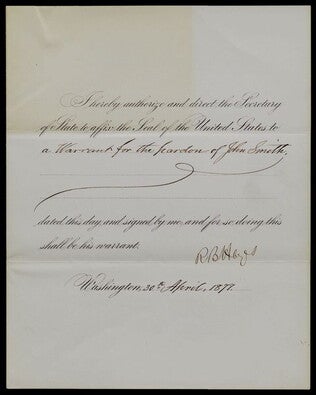 I hereby authorize and direct the Secretary
of State to affix the Seal of the United States to
a Warrant for the Pardon of John Smith,
dated this day, and signed by me, and for so doing this
shall be his warrant.
R B Hayes
Washington, 20th April, 1877.